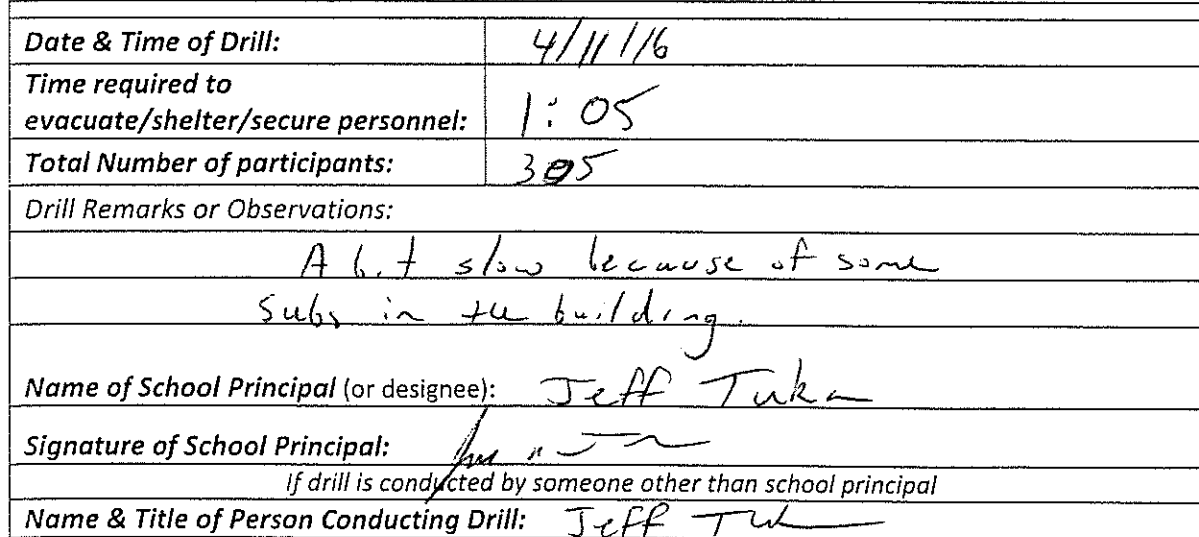 Date & Time of Drill: 4/11/16
Time required to
evacuate/shelter/secure personnel: 1:05
Total Number of participants: 305
Drill Remarks or Observations:
A bit slow because of some
subs in the building.
Name of School Principal (or designee): Jeff
Signature of School Principal:
If drill is conducted by someone other than school principal
Name & Title of Person Conducting Drill: Jeff